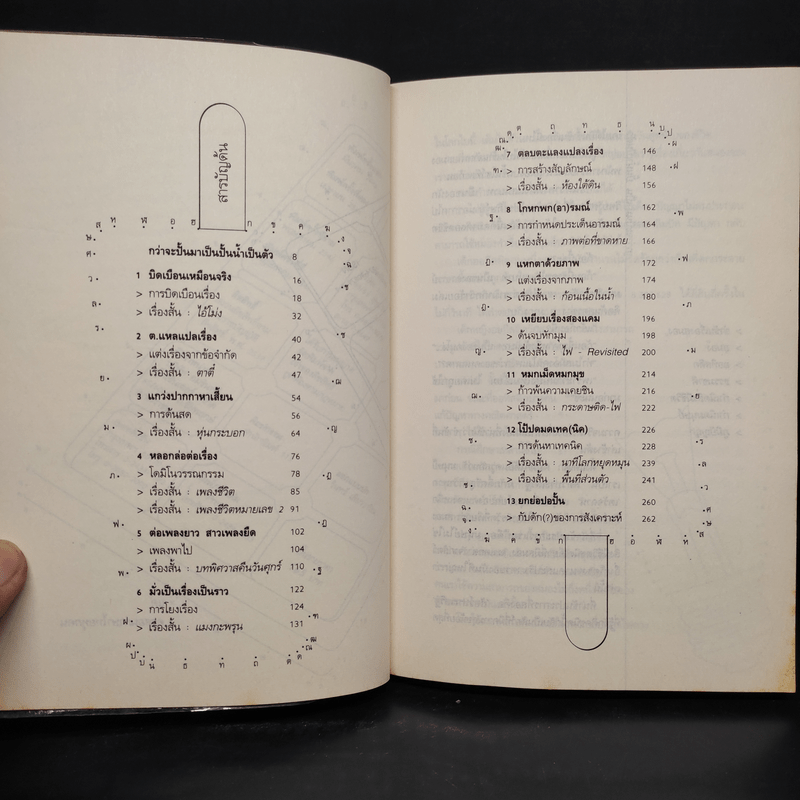 สารบัญดั้น
ส ห ฬ อ ฮ ก ข ค ฆ ง จ ฉ
ษ ศ ว ล ร ย ม ภ ฟ พ ผ ป บ น ธ ท ถ ต ด ณ ฒ ฑ ฐ ฏ ฎ ญ ฌ ซ ช
กว่าจะปั้นมาเป็นปั้นน้ำเป็นตัว 8
1 บิดเบือนเหมือนจริง 16
> การบิดเบือนเรื่อง 18
> เรื่องสั้น : ไอ้โม่ง 32
2 ต.แหลแปลเรื่อง 40
> แต่งเรื่องจากข้อจำกัด 42
> เรื่องสั้น : ตาตี่ 47
3 แกว่งปากกาหาเสี้ยน 54
> การด้นสด 56
> เรื่องสั้น : หุ่นกระบอก 64
4 หลอกล่อต่อเรื่อง 76
> โดมิโนวรรณกรรม 78
> เรื่องสั้น : เพลงชีวิต 85
> เรื่องสั้น : เพลงชีวิตหมายเลข 2 91
5 ต่อเพลงยาว สาวเพลงยืด 102
> เพลงพาไป 104
> เรื่องสั้น : บทพิศวาสคืนวันศุกร์ 110
6 มั่วเป็นเรื่องเป็นราว 122
> การโยงเรื่อง 124
> เรื่องสั้น : แมงกะพรุน 131
7 ตลบตะแลงแปลงเรื่อง 146
> การสร้างสัญลักษณ์ 148
> เรื่องสั้น : ห้องใต้ดิน 156
8 โกหกพก(อา)รมณ์ 162
> การกำหนดประเด็นอารมณ์ 164
> เรื่องสั้น : ภาพต่อที่ขาดหาย 166
9 แหกตาด้วยภาพ 172
> แต่งเรื่องจากภาพ 174
> เรื่องสั้น : ก้อนเนื้อในน้ำ 180
10 เหยียบเรื่องสองแคม 196
> ต้นจบหักมุม 198
> เรื่องสั้น : ไฟ - Revisited 200
11 หมกเม็ดหมกมุข 214
> ก้าวพ้นความเคยชิน 216
> เรื่องสั้น : กระดาษติด-ไฟ 222
12 โป้ปดมดเทค(นิค) 226
> การค้นหาเทคนิค 228
> เรื่องสั้น : นาทีโลกหยุดหมุน 239
> เรื่องสั้น : พื้นที่ส่วนตัว 241
13 ยกย่อปอปั้น 260
> กับดัก(?)ของการสังเคราะห์ 262